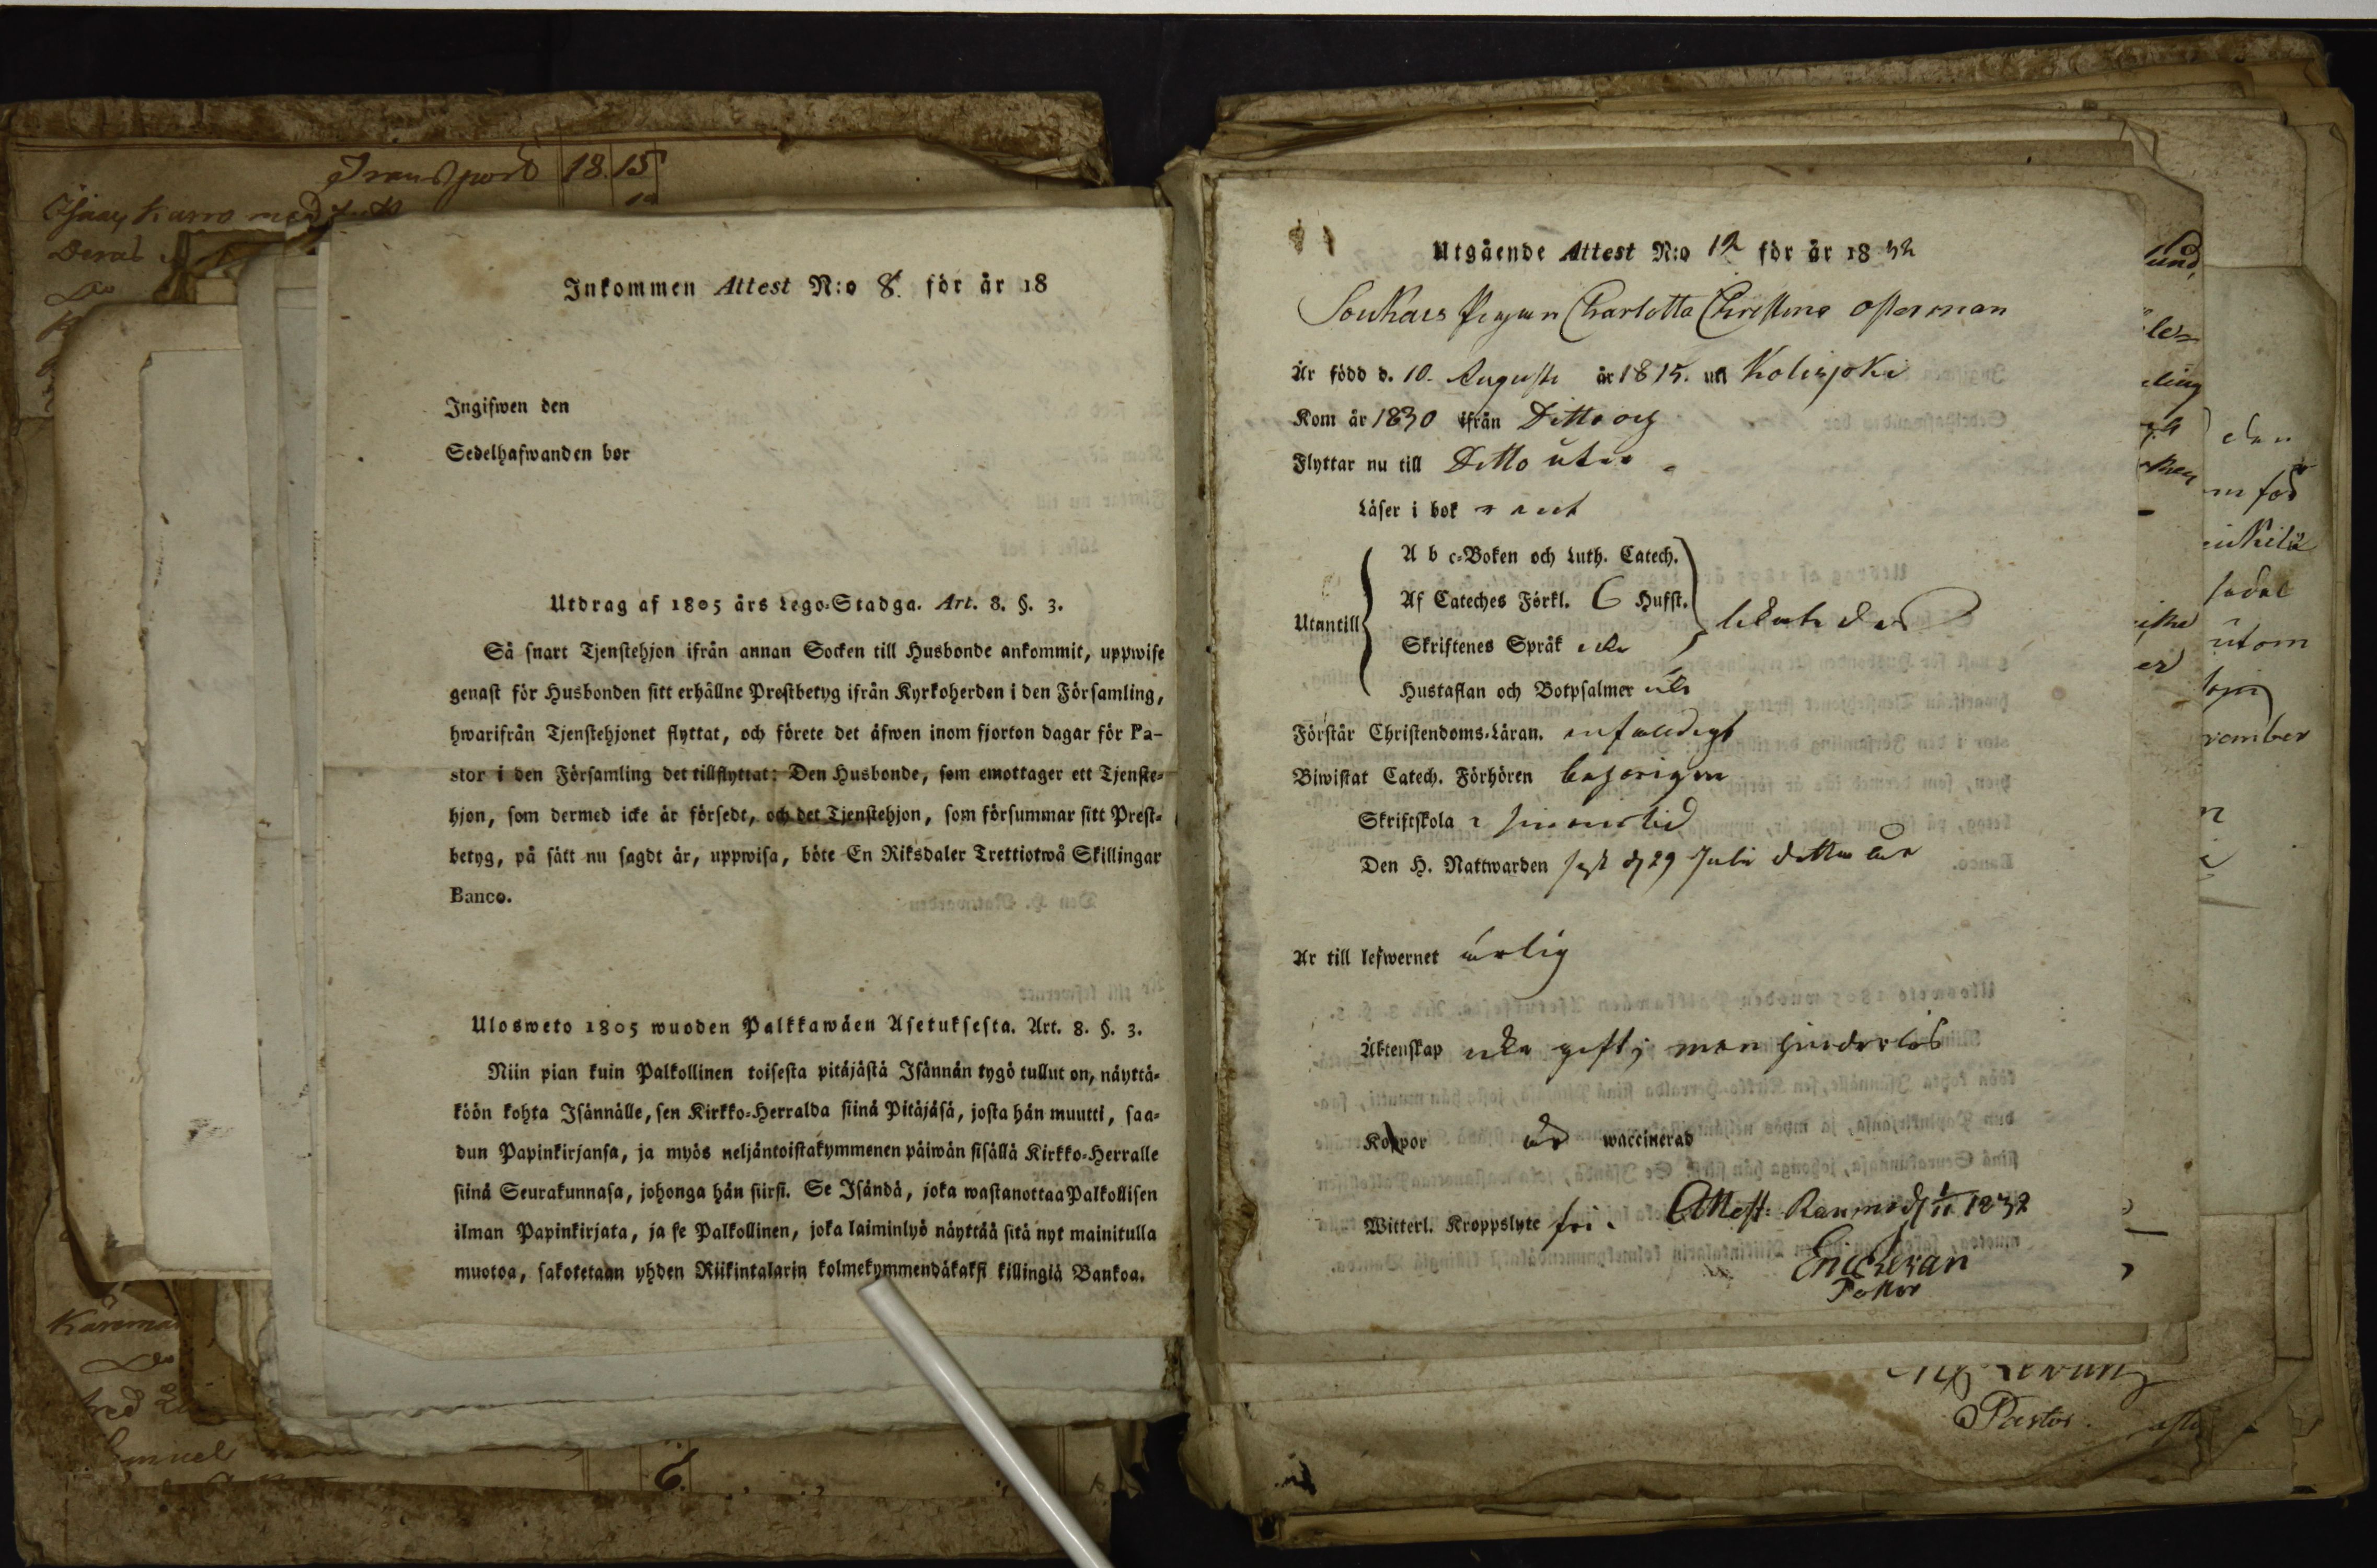 Transport 18. 15
Inkommen Attest N:o 8. för år 18
Ingifwen den
Sedelhafwanden bor
Utdrag af 1805 års Lego-Stadga. Art. 8. §. 3.
Så snart Tjenstehjon ifrån annan Socken till Husbonde ankommit, uppwise
genast för Husbonden sitt erhållne Prestbetyg ifrån Kyrkoherden i den Församling,
hwarifrån Tjenstehjonet flyttat, och förete det äfwen inom fjorton dagar för Pa-
stor i den Församling det tillflyttat: Den Husbonde, som emottager ett Tjenste-
hjon, som dermed icke är försedt, och det Tjenstehjon, som försummar sitt Prest-
betyg, på sätt nu sagdt är, uppwisa, böte En Riksdaler Trettiotwå Skillingar
Banco.
Ulosweto 1805 wuoden Palkkawäen Asetuksesta. Art. 8. §. 3.
Niin pian kuin Palkollinen toisesta pitäjästä Isännän tygö tullut on, näyttä-
köön kohta Isännälle, sen Kirkko-Herralda siinä Pitäjäsä, josta hän muutti, saa-
dun Papinkirjansa, ja myös neljäntoistakymmenen päiwän sisällä Kirkko-Herralle
siinä Seurakunnasa, johonga hän siirsi. Se Isändä, joka wastanottaa Palkollisen
ilman Papinkirjata, ja se Palkollinen, joka laiminlyö näyttää sitä nyt mainitulla
muotoa, sakotetaan yhden Riikintalarin kolmekymmendäkaksi killingiä Bankoa.
Utgående Attest N:o 12 för år 1832
Charlotta Christina Osterman
Är född d. 10. Augusti år 1815. uti Kolisjoki
Kom år 1830 ifrån Ditto och
Flyttar nu till Ditto åter
Läser i bok rent
Utantill
A b c-Boken och Luth. Catech.
Af Cateches Förkl. Husst.
Skriftenes Språk icke
Hustaflan och Botpsalmer icke
Förstår Christendoms-Läran. enfaldigt
Biwistat Catech. Förhören behörigen
Skriftskola i sinom tid
Den H. Nattwarden sist d 29 Juli detta år
Är till lefwernet ärlig
Äktenskap icke gift; men hinderlös
Koppor är waccinerad
Witterl. Kroppslyte fri. Attest: Raumo d 1/11 1832
Eric Levan
Pastor
Pastor.